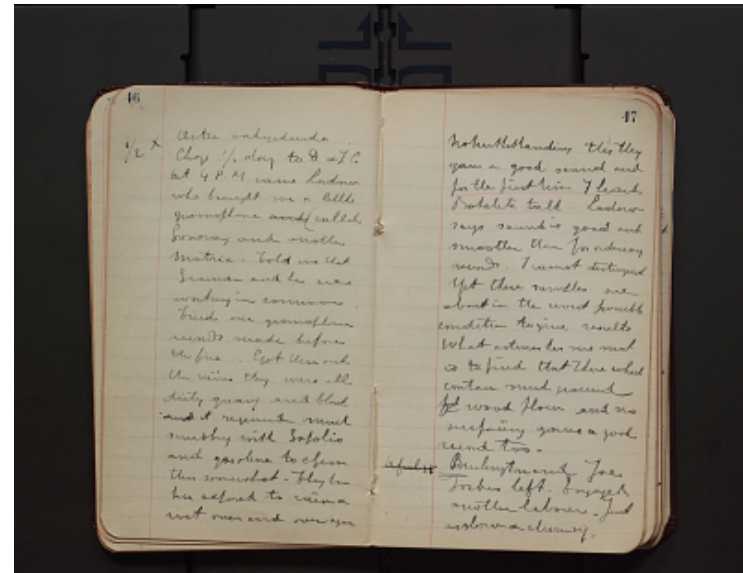 46
1/2 x
Chop 1/2 day to
at 4 P.M. came Ladow
who brought me a little
gramophone and called
Sonora and another
matrix - Told me that
and he was
working in common
Tried our gramophone
records made before
the fire. Got them out
the ruins they were all
dirty greasy and black
and it required much
scrubbing with Sapolio
and gasoline to clean
them somewhat - They
exposed to
wet over and over again
47
Notwithstanding this they
gave a good sound and
for the first time I heard
Bakelite talk. Ladow
says sound is good and
smoother than for ordinary
records. I cannot distinguish
Yet these records are
about in the worst possible
condition to give results
What astonishes me most
is to find that those which
contain much ground
wood flour and no
gave a good
record too.
and Joe
Forbes left. Engaged
another laborer. Just
as slow and clumsy.